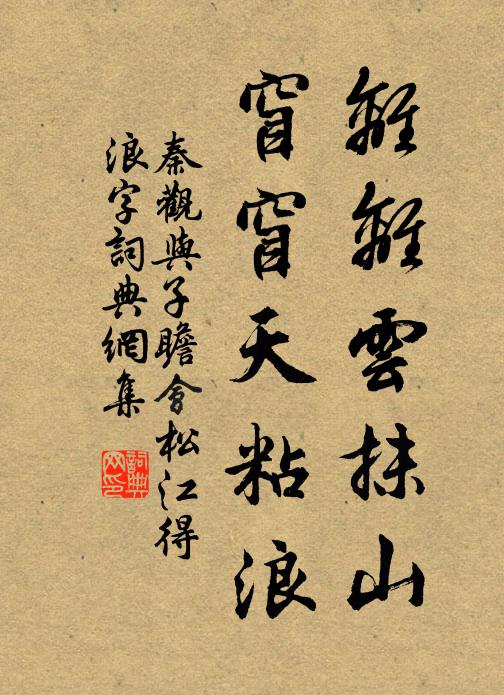 離離雲抹山
窅窅天粘浪
秦觀與子瞻會松江得
浪字詞典網集
詞典
网印